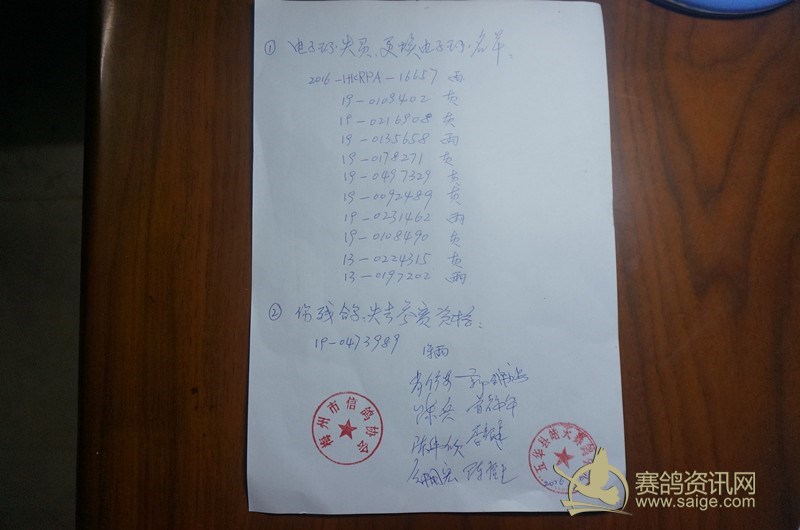 ① 电子环失灵、更换电子环名单.
2016-HKRPA-16657 雨
19-0109402 灰
19-0216908 灰
19-0135658 雨
19-0178271 灰
19-0497329 灰
19-0092489 灰
19-0231462 雨
19-0108490 灰
13-0224315 灰
13-0197202 雨
② 伤残鸽、失去参赛资格:
19-0473989 深雨
陈兵
梅州市信鸽协会
五华县
2016
赛鸽资讯网
www.saige.com